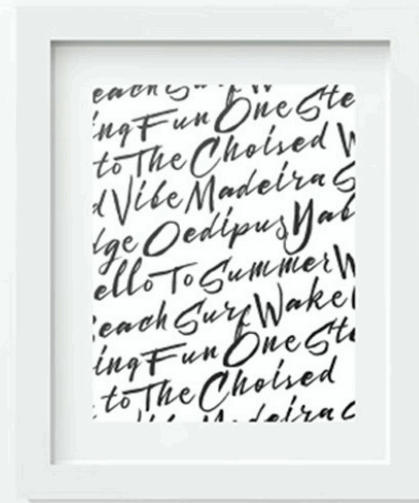 each Surf W
ing Fun One Ste
to The Choised W
d Vibe Madeira S
dge Oedipus Yab
ello To Summer W
each Surf Wake
ing Fun One Ste
to The Choised
Vibe Madeira S